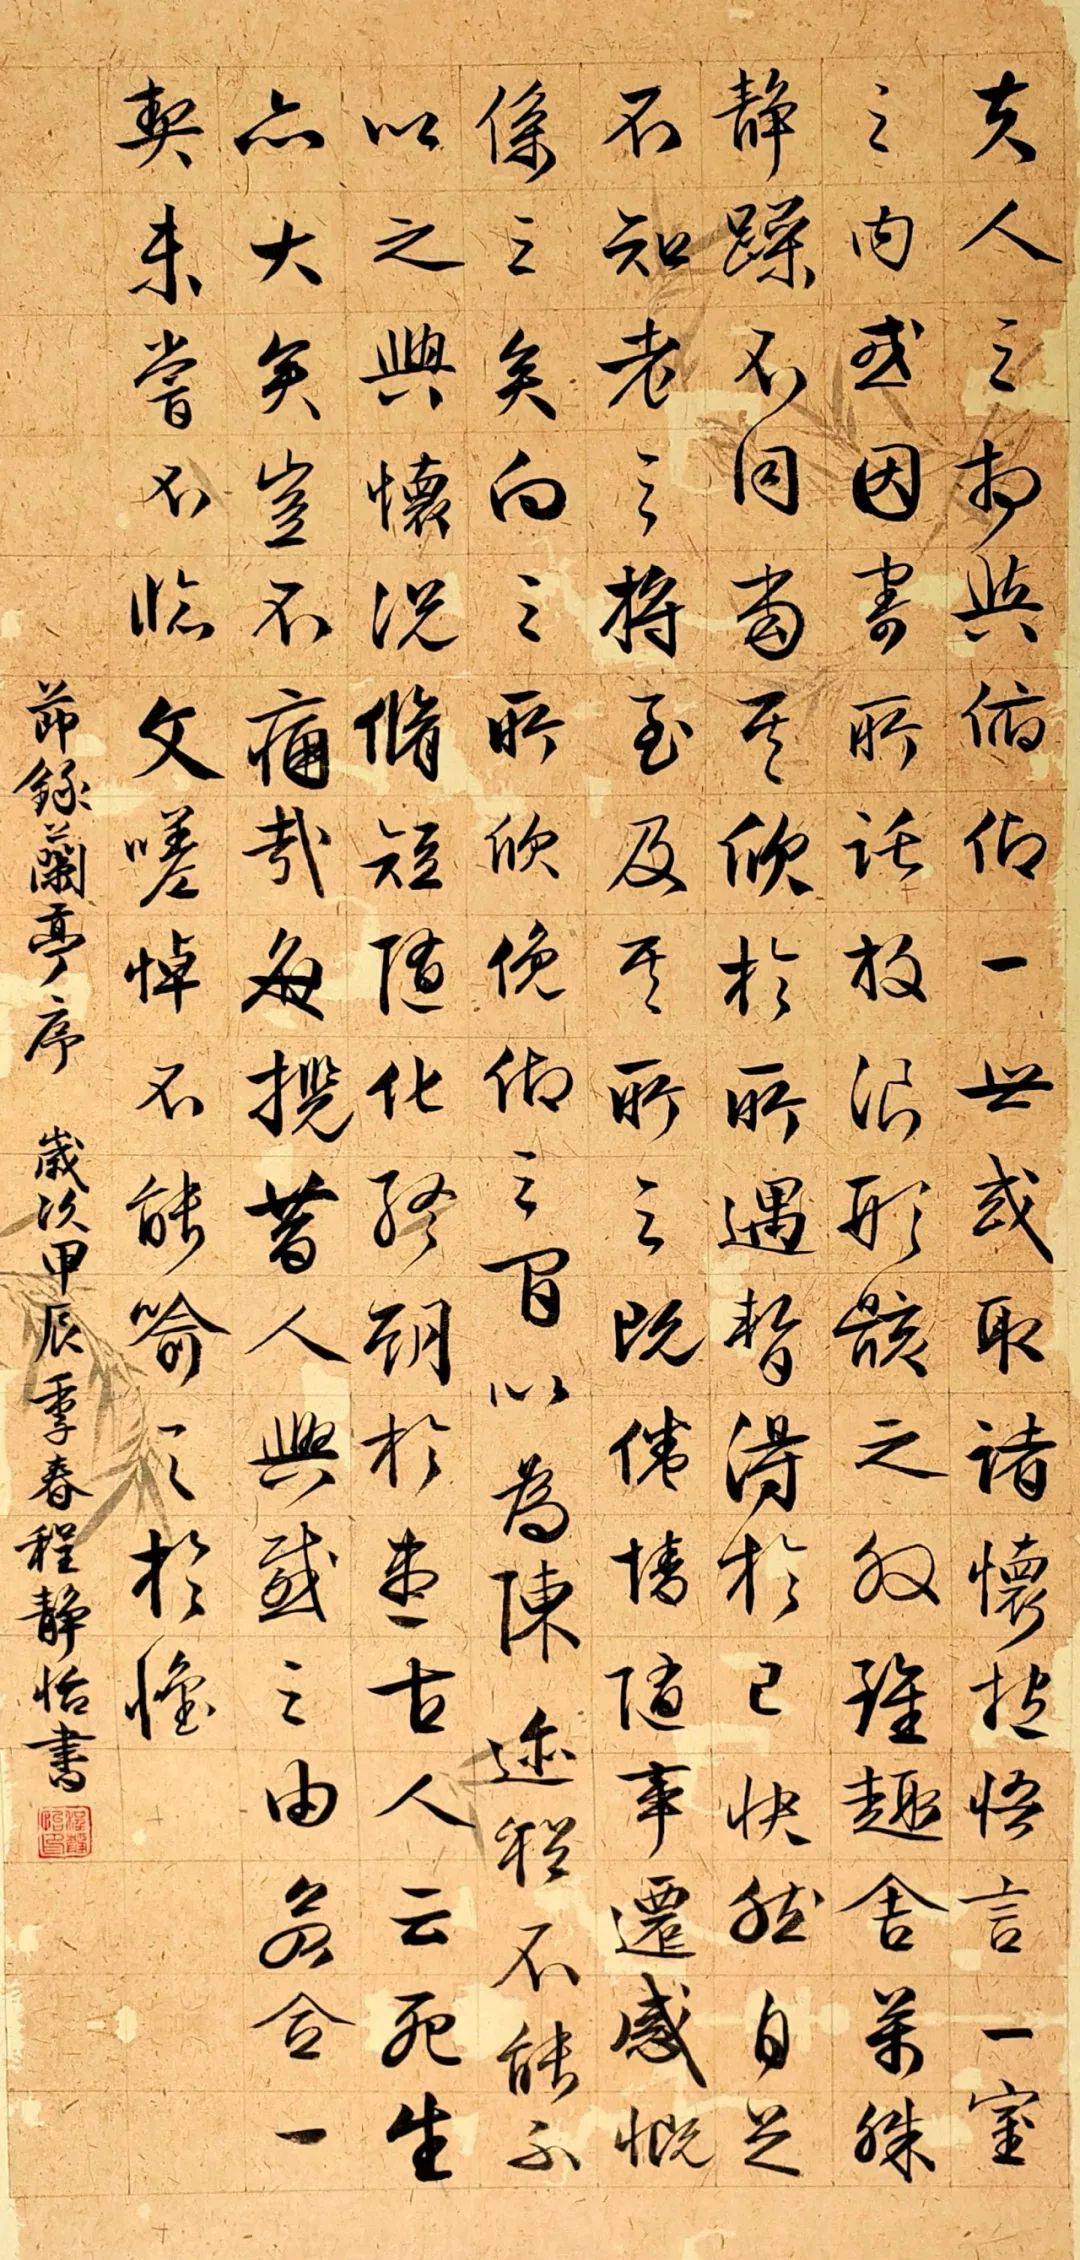 夫人之相與俯仰一世或取諸懷抱悟言一室
之內或因寄所託放浪形骸之外雖趣舍萬殊
静躁不同當其欣於所遇暫得於己快然自足
不知老之將至及其所之既倦情隨事遷感慨
係之矣向之所欣俛仰之間以為陳迹猶不能不
以之興懷況脩短隨化終期於盡古人云死生
亦大矣豈不痛哉每攬昔人興感之由若合一
契未嘗不臨文嗟悼不能喻之於懷
節錄蘭亭序 歲次甲辰季春程静怡書